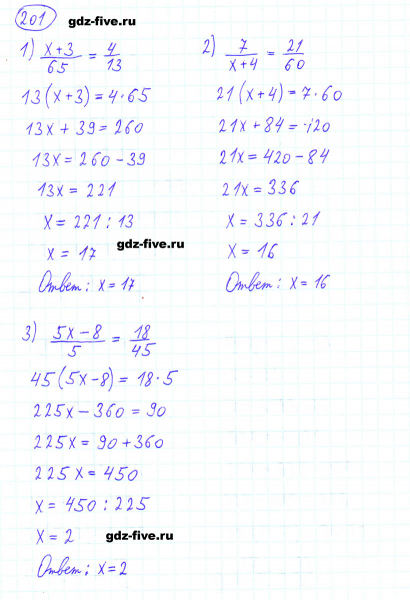 201 gdz-five.ru
1) (x+3)/65 = 4/13
13(x+3) = 4·65
13x + 39 = 260
13x = 260 – 39
13x = 221
x = 221 : 13
x = 17
gdz-five.ru
Ответ: x = 17
2) 7/(x+4) = 21/60
21(x+4) = 7·60
21x + 84 = 420
21x = 420 – 84
21x = 336
x = 336 : 21
x = 16
Ответ: x = 16
3) (5x – 8)/5 = 18/45
45(5x – 8) = 18·5
225x – 360 = 90
225x = 90 + 360
225x = 450
x = 450 : 225
x = 2
gdz-five.ru
Ответ: x = 2